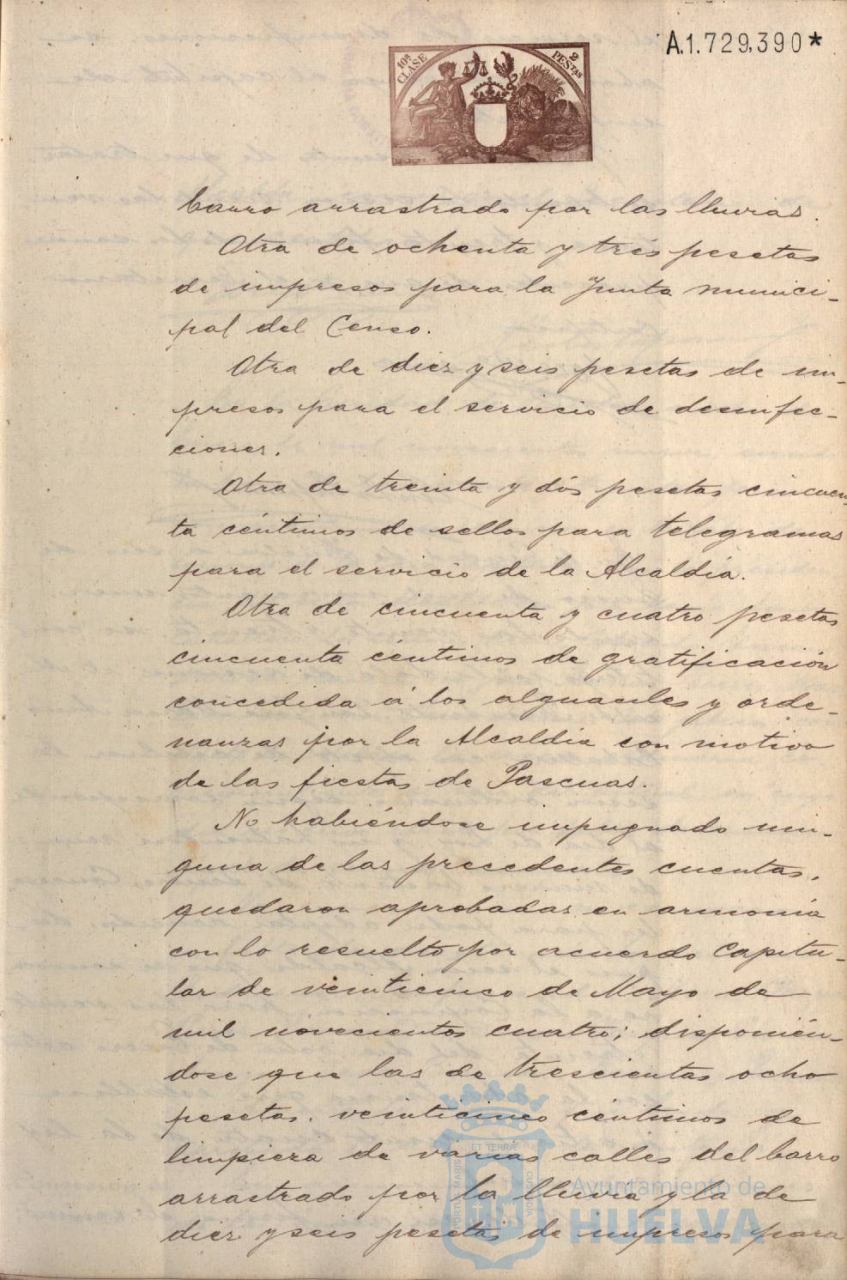 A.1.729,390*
10ª CLASE
2 PESTAS
barro arrastrado por las lluvias.
Otra de ochenta y tres pesetas
de impresos para la Junta munici-
pal del Censo.
Otra de diez y seis pesetas de im-
presos para el servicio de desinfec-
ciones.
Otra de treinta y dós pesetas cincuen
ta céntimos de sellos para telegramas
para el servicio de la Alcaldía.
Otra de cincuenta y cuatro pesetas
cincuenta céntimos de gratificación
concedida á los alguaciles y orde-
nanzas por la Alcaldía con motivo
de las fiestas de Pascuas.
No habiéndose impugnado nin-
guna de las precedentes cuentas,
quedaron aprobadas en armonía
con lo resuelto por acuerdo Capitu-
lar de veinticinco de Mayo de
mil novecientos cuatro; disponién-
dose que las de trescientas ocho
pesetas veinticinco céntimos de
limpieza de varias calles del barro
arrastrado por la lluvia y la de
diez y seis pesetas de impresos para
Ayuntamiento de
HUELVA